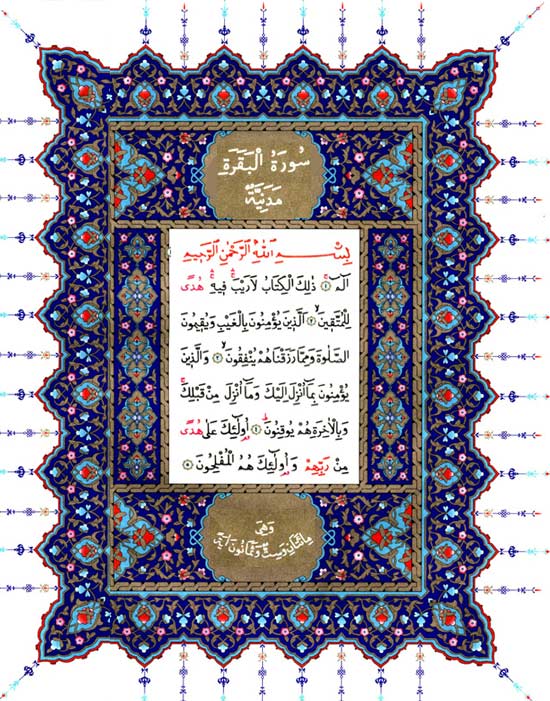 سُورَةُ الْبَقَرَةِ
مَدَنِيَّةٌ
بِسْمِ اللّٰهِ الرَّحْمٰنِ الرَّحِيمِ
الٓمٓ ۚ ﴿١﴾ ذٰلِكَ الْكِتَابُ لَا رَيْبَ ۚۛ فِيهِ ۚۛ هُدًى
لِلْمُتَّقِينَۙ ﴿٢﴾ اَلَّذِينَ يُؤْمِنُونَ بِالْغَيْبِ وَيُقِيمُونَ
الصَّلٰوةَ وَمِمَّا رَزَقْنَاهُمْ يُنْفِقُونَۙ ﴿٣﴾ وَالَّذِينَ
يُؤْمِنُونَ بِمَٓا اُنْزِلَ اِلَيْكَ وَمَٓا اُنْزِلَ مِنْ قَبْلِكَۚ
وَبِالْاٰخِرَةِ هُمْ يُوقِنُونَۜ ﴿٤﴾ اُو۬لٰٓئِكَ عَلٰى هُدًى
مِنْ رَبِّهِمْ وَاُو۬لٰٓئِكَ هُمُ الْمُفْلِحُونَ ﴿٥﴾
وَهِيَ
مِائَتَانِ وَسِتٌّ وَثَمَانُونَ اٰيَةً